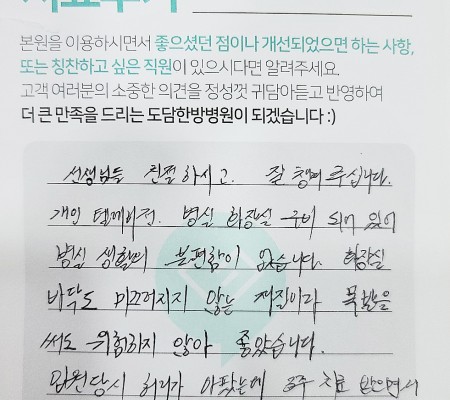 치료후기
본원을 이용하시면서 좋으셨던 점이나 개선되었으면 하는 사항,
또는 칭찬하고 싶은 직원이 있으시다면 알려주세요.
고객 여러분의 소중한 의견을 정성껏 귀담아듣고 반영하여
더 큰 만족을 드리는 도담한방병원이 되겠습니다 :)
선생님들 친절하시고. 잘 챙겨 주십니다.
개인 텔레비전. 병실 화장실 구비 되어 있어
병실 생활의 불편함이 없습니다. 화장실
바닥도 미끄러지지 않는 재질이라 목발을
써도 위험하지 않아 좋았습니다.
입원당시 허리가 아팠는데 3주 치료 받으면서